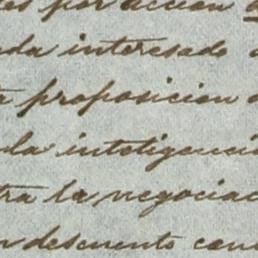 es por accion
da interesado
proposicion
da inteligenci
tra la negociac
descuento con